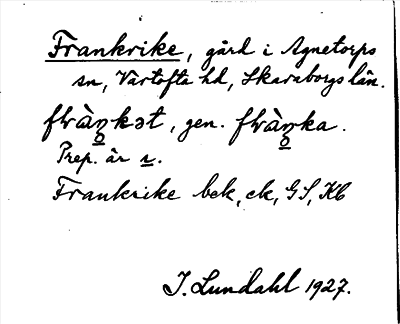 Frankrike, gård i Agnetorps
sn, Vartofta hd, Skaraborgs län.
fràŋkət, gen. fràŋka.
Prep. är
Frankrike bek, ek, GS, Kb
I. Lundahl 1927.